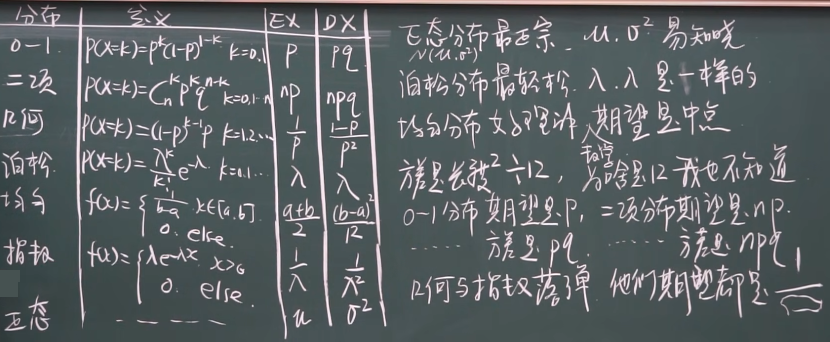 分布 定义 EX DX
0-1 P(X=k)=p^k(1-p)^{1-k} k=0,1 p pq
二项 P(X=k)=C_n^k p^k q^{n-k} k=0,1…n np npq
几何 P(X=k)=(1-p)^{k-1}p k=1,2,… 1/p (1-p)/p^2
泊松 P(X=k)=λ^k/k! e^{-λ} k=0,1… λ λ
均匀 f(x)={1/(b-a) x∈[a,b]. (a+b)/2 (b-a)^2/12
0. else.
指数 f(x)={λe^{-λx} x>0 1/λ 1/λ^2
0. else.
正态 ------ μ σ^2
正态分布最正宗. μ.σ^2 易知晓
N(μ,σ^2)
泊松分布最轻松. λ.λ是一样的
均匀分布 期望是中点
方差是长度^2÷12, 为啥是12我也不知道
0-1分布期望是p, 二项分布期望是np.
…… 方差是pq, …… 方差是npq
几何与指数 他们期望都是 1/